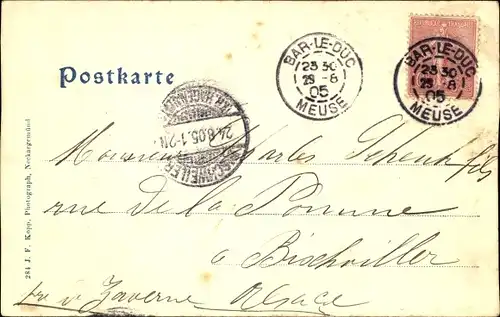 Postkarte
BAR-LE-DUC
23 30
23 -8
05
MEUSE
BAR-LE-DUC
23 30
23 -8
05
MEUSE
24.8.05.1-2N.
Monsieur Charles Schenk fils
rue de la Pomme
à Bischwiller
Alsace
284 J. F. Kopp, Photograph, Neckargemünd